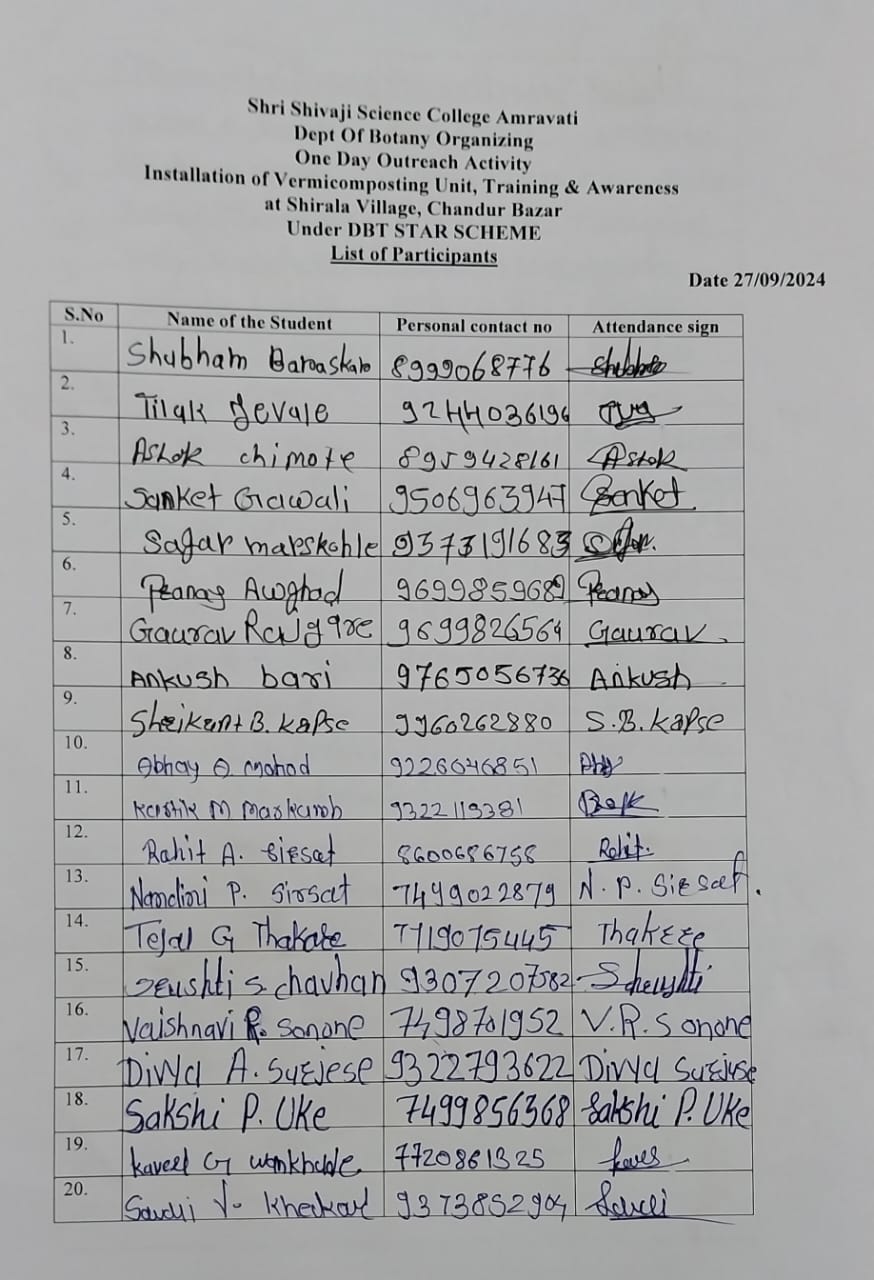 Shri Shivaji Science College Amravati
Dept Of Botany Organizing
One Day Outreach Activity
Installation of Vermicomposting Unit, Training & Awareness
at Shirala Village, Chandur Bazar
Under DBT STAR SCHEME
List of Participants
Date 27/09/2024
S.No Name of the Student Personal contact no Attendance sign
1. Shubham 8999068776
2. Tilak Jevale 9244036196
3. Ashok chimote 8959428161 Ashok
4. Sanket Gawali 9506963947 Sanket
5. Sagar marskohle 9373191683
6. Pranay Awghad 9699859689 Pranay
7. Gaurav 9699826564 Gaurav
8. Ankush bari 9765056736 Ankush
9. Shrikant B. Kapse 9960262880 S.B. Kapse
10. Abhay Mohod 9226046851
11. Kartik M 9322119381
12. Rohit A. Sirsat 8600686758 Rohit
13. Nandini P. Sirsat 7499022879 N. P. Sirsat.
14. Tejal G Thakare 7719075445
15. Srushti S chavhan 9307207582
16. Vaishnavi R. Sonone 7498701952 V.R. Sonone
17. Divya A. Surjuse 9322793622 Divya Surjuse
18. Sakshi P. Uke 7499856368 Sakshi P. Uke
19. 7720861325
20. 9373852904